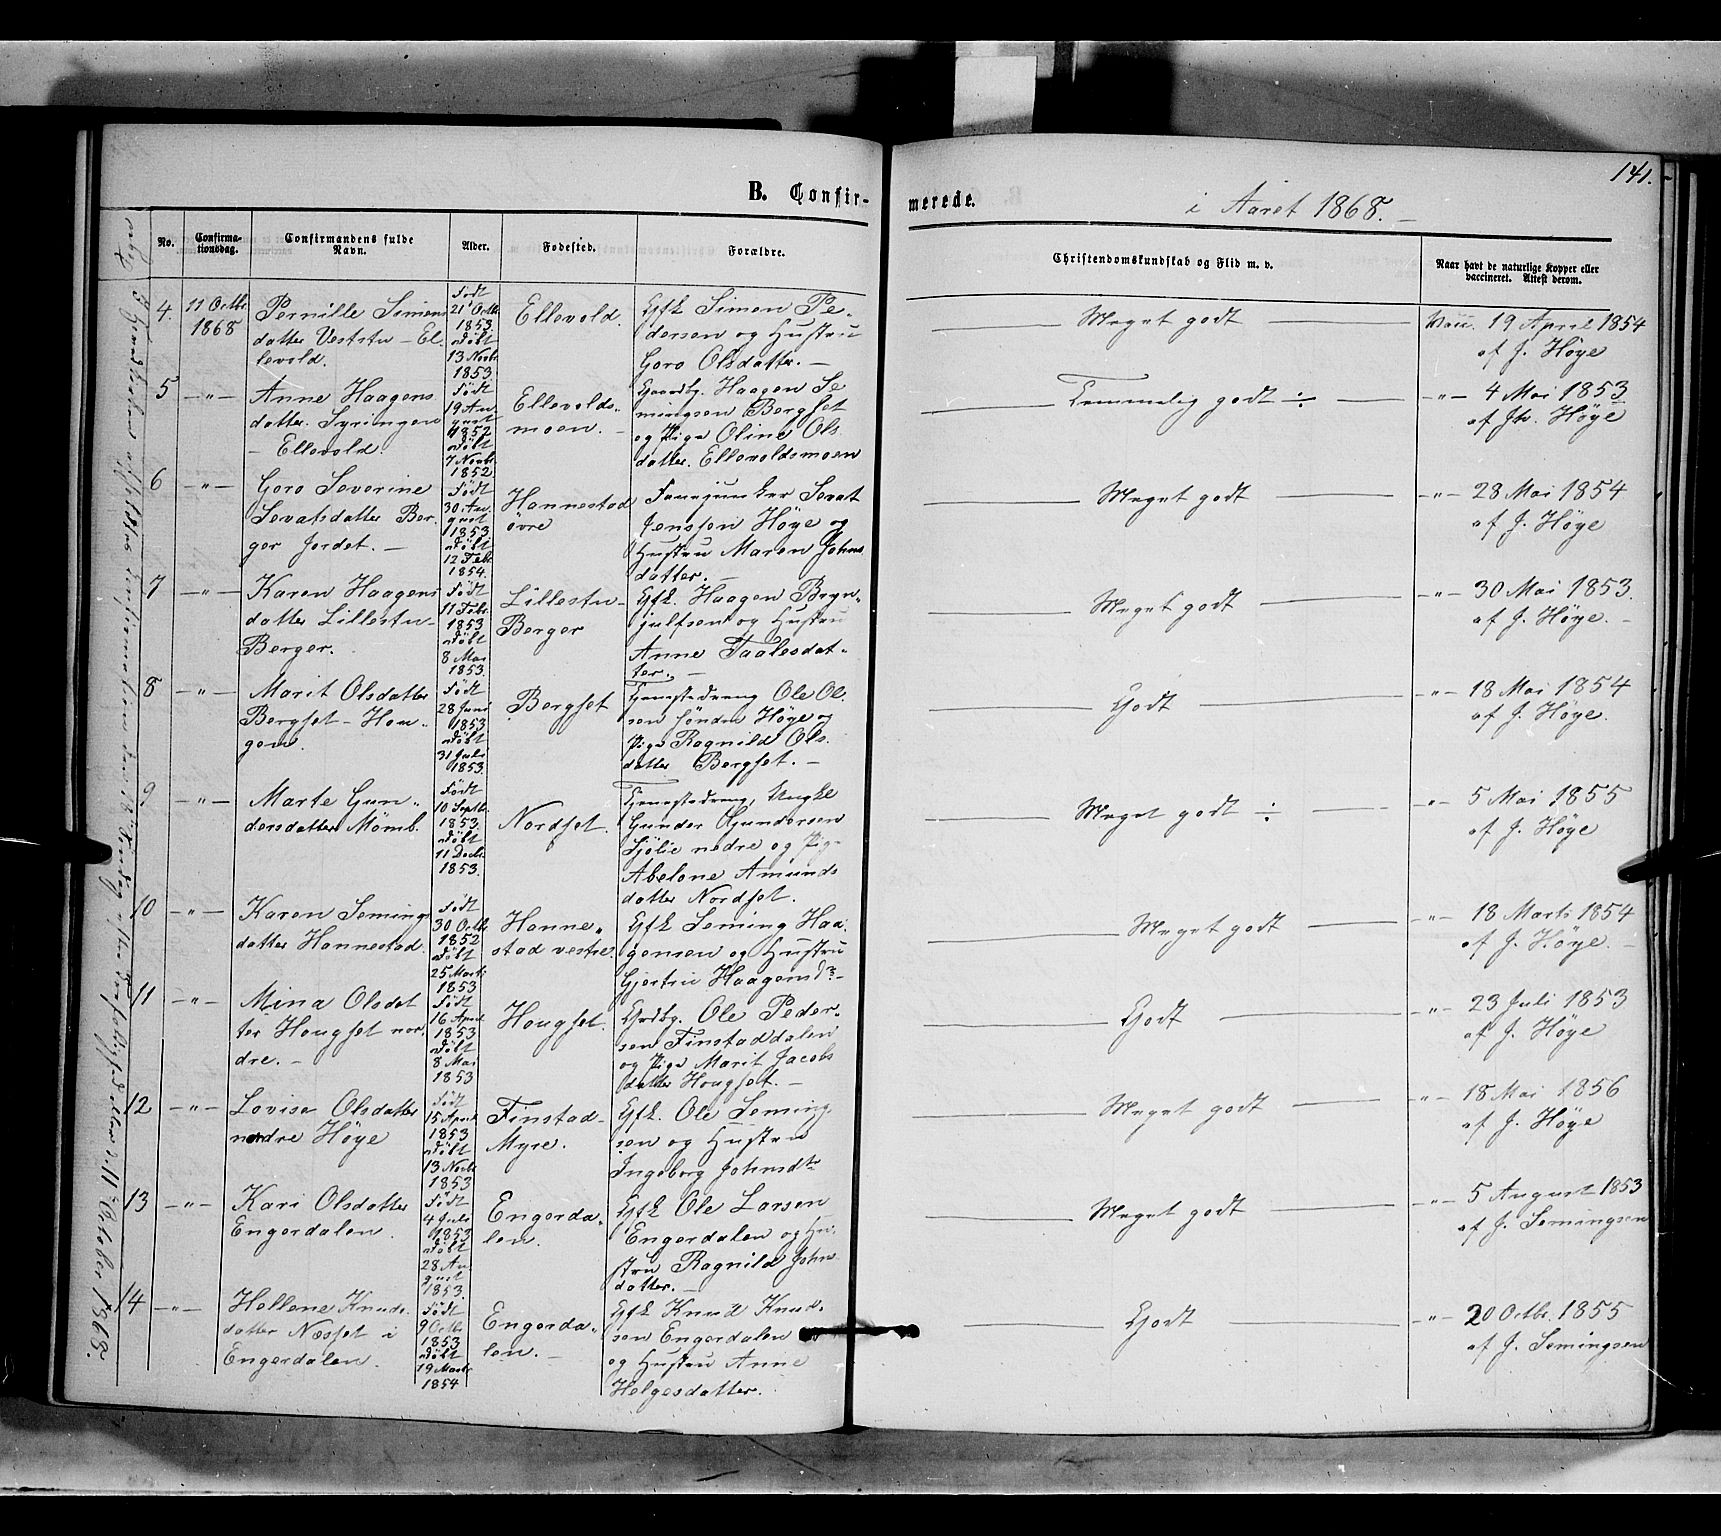 141.
B. Confir-
merede.
i Aaret 1868.
No.
Confirma-
tionsdag.
Confirmandens fulde
Navn.
Alder.
Fødested.
Forældre.
Christendomskundskab og Flid m. v.
Naar havt de naturlige Kopper eller
vaccineret. Attest derom.
4.
11 Octbr.
1868
Pernille Simens
datter Veststu - El-
levold.
Født
21 Octb.
1853.
Døbt
13 Novb.
1853
Ellevold.
Gfk Simen Pe-
dersen og Hustru
Goro Olsdatter. -
Meget godt
Vacc. 19 April 1854
af J. Höye
5
-"-
Anne Haagens
datter Syringen
- Ellevold.
Født
19 Au-
gust
1852
Døbt
7 Novb.
1852
Ellevolds-
moen. -
Gaardbg. Haagen Se
mingsen Bergset
og Pige Oline Ols
datter. Ellevoldsmoen
Temmelig godt ÷
-"- 4 Mai 1853
af Jh. Höye
6
-"-
Goro Severine
Sevatsdatter Ber-
ger Jordet. -
Født
30 Au-
gust
1853
Døbt
12 Feb.
1854.
Hannestad
övre
Fanejunker Sevat
Jenssen Höye og
Hustru Maren Johns
datter. -
Meget godt
-"- 28 Mai 1854
af J. Höye
7
-"-
Karen Haagens
datter Lillestu-
Berger.
Født
11 Febr.
1853
Døbt
8 Mai
1853.
Lillestu-
Berger
Gfk. Haagen Bryn-
julfsen og Hustru
Anne Taalesdat-
ter. -
Meget godt
-"- 30 Mai 1853.
af J. Höye. -
8
-"-
Marit Olsdatter
Bergset - Hau-
gen.
Født
28 Juni
1853
Døbt
31 Juli
1853.
Bergset
Tjenestedreng Ole Ol-
sen söndre Höye og
Pige Ragnild Ols-
datter Bergset. -
Godt
-"- 18 Mai 1854
af J. Höye.
9
-"-
Marte Gun-
dersdatter Mömb.
Født
10 Septb.
1853.
Døbt
11 Decb.
1853.
Nordset.
Tjenestedreng, Ungk
Gunder Gundersen
Sjölie nedre og Pige
Abelone Amunds
datter Nordset.
Meget godt ÷
-"- 5 Mai 1855
af J. Höye
10
-"-
Karen Semings
datter Hannestad.
Født
30 Octb.
1852
Døbt
25 Marts
1853
Hanne-
stad vestre.
Gfk Seming Haa-
gensen og Hustru
Gjertru Haagensd. -
Meget godt
-"- 18 Marts 1854
af J. Höye. -
11
-"-
Mina Olsdat
ter Hougset nor-
dre. -
Født
16 April
1853
Døbt
8 Mai
1853
Hougset.
Grdbg. Ole Peder-
sen Finstaddalen
og Pige Marit Jacobs
datter Hougset. -
Godt
-"- 23 Juli 1853
af J. Höye
12
-"-
Lovise Olsdatter
nordre Höye
Født
15 April
1853
Døbt
13 Novb.
1853
Finstad-
Myre.
Gfk. Ole Seming-
sen og Hustru
Ingeborg Johnsdtr
Meget godt
-"- 18 Mai 1856
af J. Höye
13
-"-
Kari Olsdatter
Engerdalen.
Født
4 Juli
1853
Døbt
28 Au
gust
1853.
Engerda-
len.
Gfk Ole Larsen
Engerdalen og Hu-
stru Ragnild John
datter. -
Meget godt
-"- 5 August 1853
af J. Semingsen
14
-"-
Hellene Knuds-
datter Næsset i
Engerdalen.
Født
9 Octbr.
1853
Døbt
19 Marts
1854
Engerda-
len. -
Gfk Knud Knud-
sen Engerdalen
og Hustru Anne
Helgesdatter.
Godt
-"- 20 Octbr. 1855
af J. Semingsen
Confirmation den 18 Søndag efter 11 October 1868.